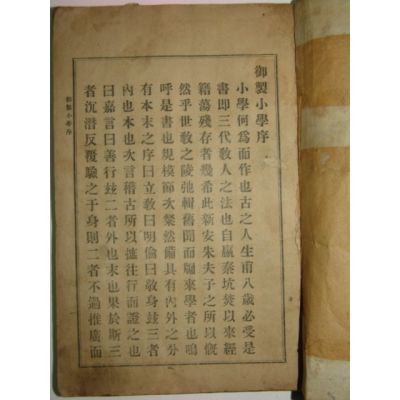 御製小學序
小學何爲而作也古之人生甫八歲必受是
書卽三代敎人之法也自嬴秦坑焚以來經
籍蕩殘存者幾希此新安朱夫子之所以慨
然乎世敎之陵弛輯舊聞而牖來學者也嗚
呼是書也規模節次粲然備具有內外之分
有本末之序曰立敎曰明倫曰敬身玆三者
內也本也次言稽古所以摭往行而證之也
曰嘉言曰善行玆二者外也末也果於斯三
者沉潛反覆驗之于身則二者不過推廣而
御製小學序